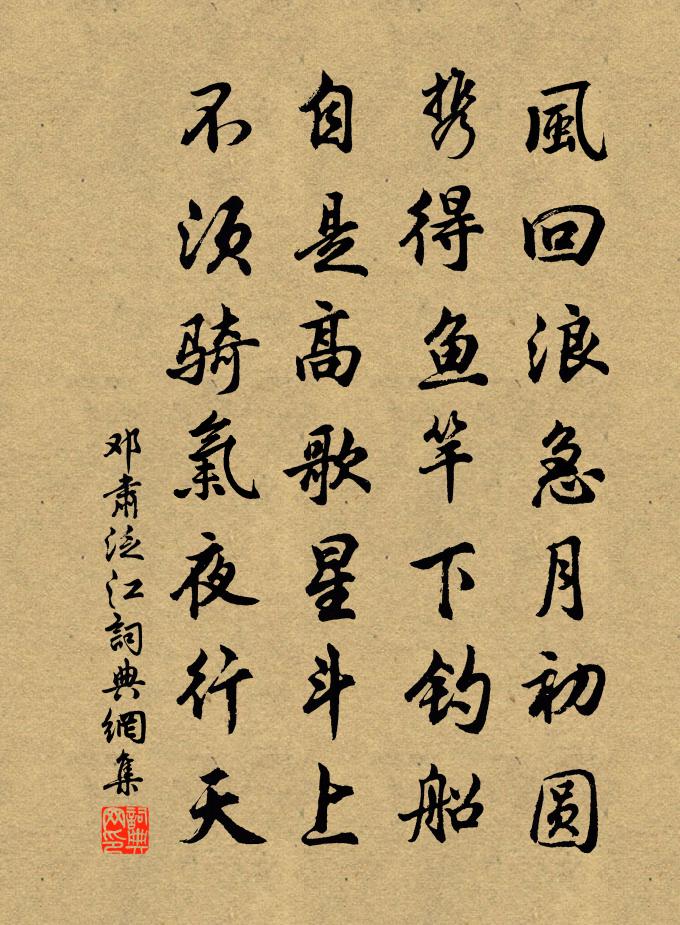 風回浪急月初圓
携得鱼竿下钓船
自是高歌星斗上
不須骑氣夜行天
邓肅泛江詞典網集
詞典网印